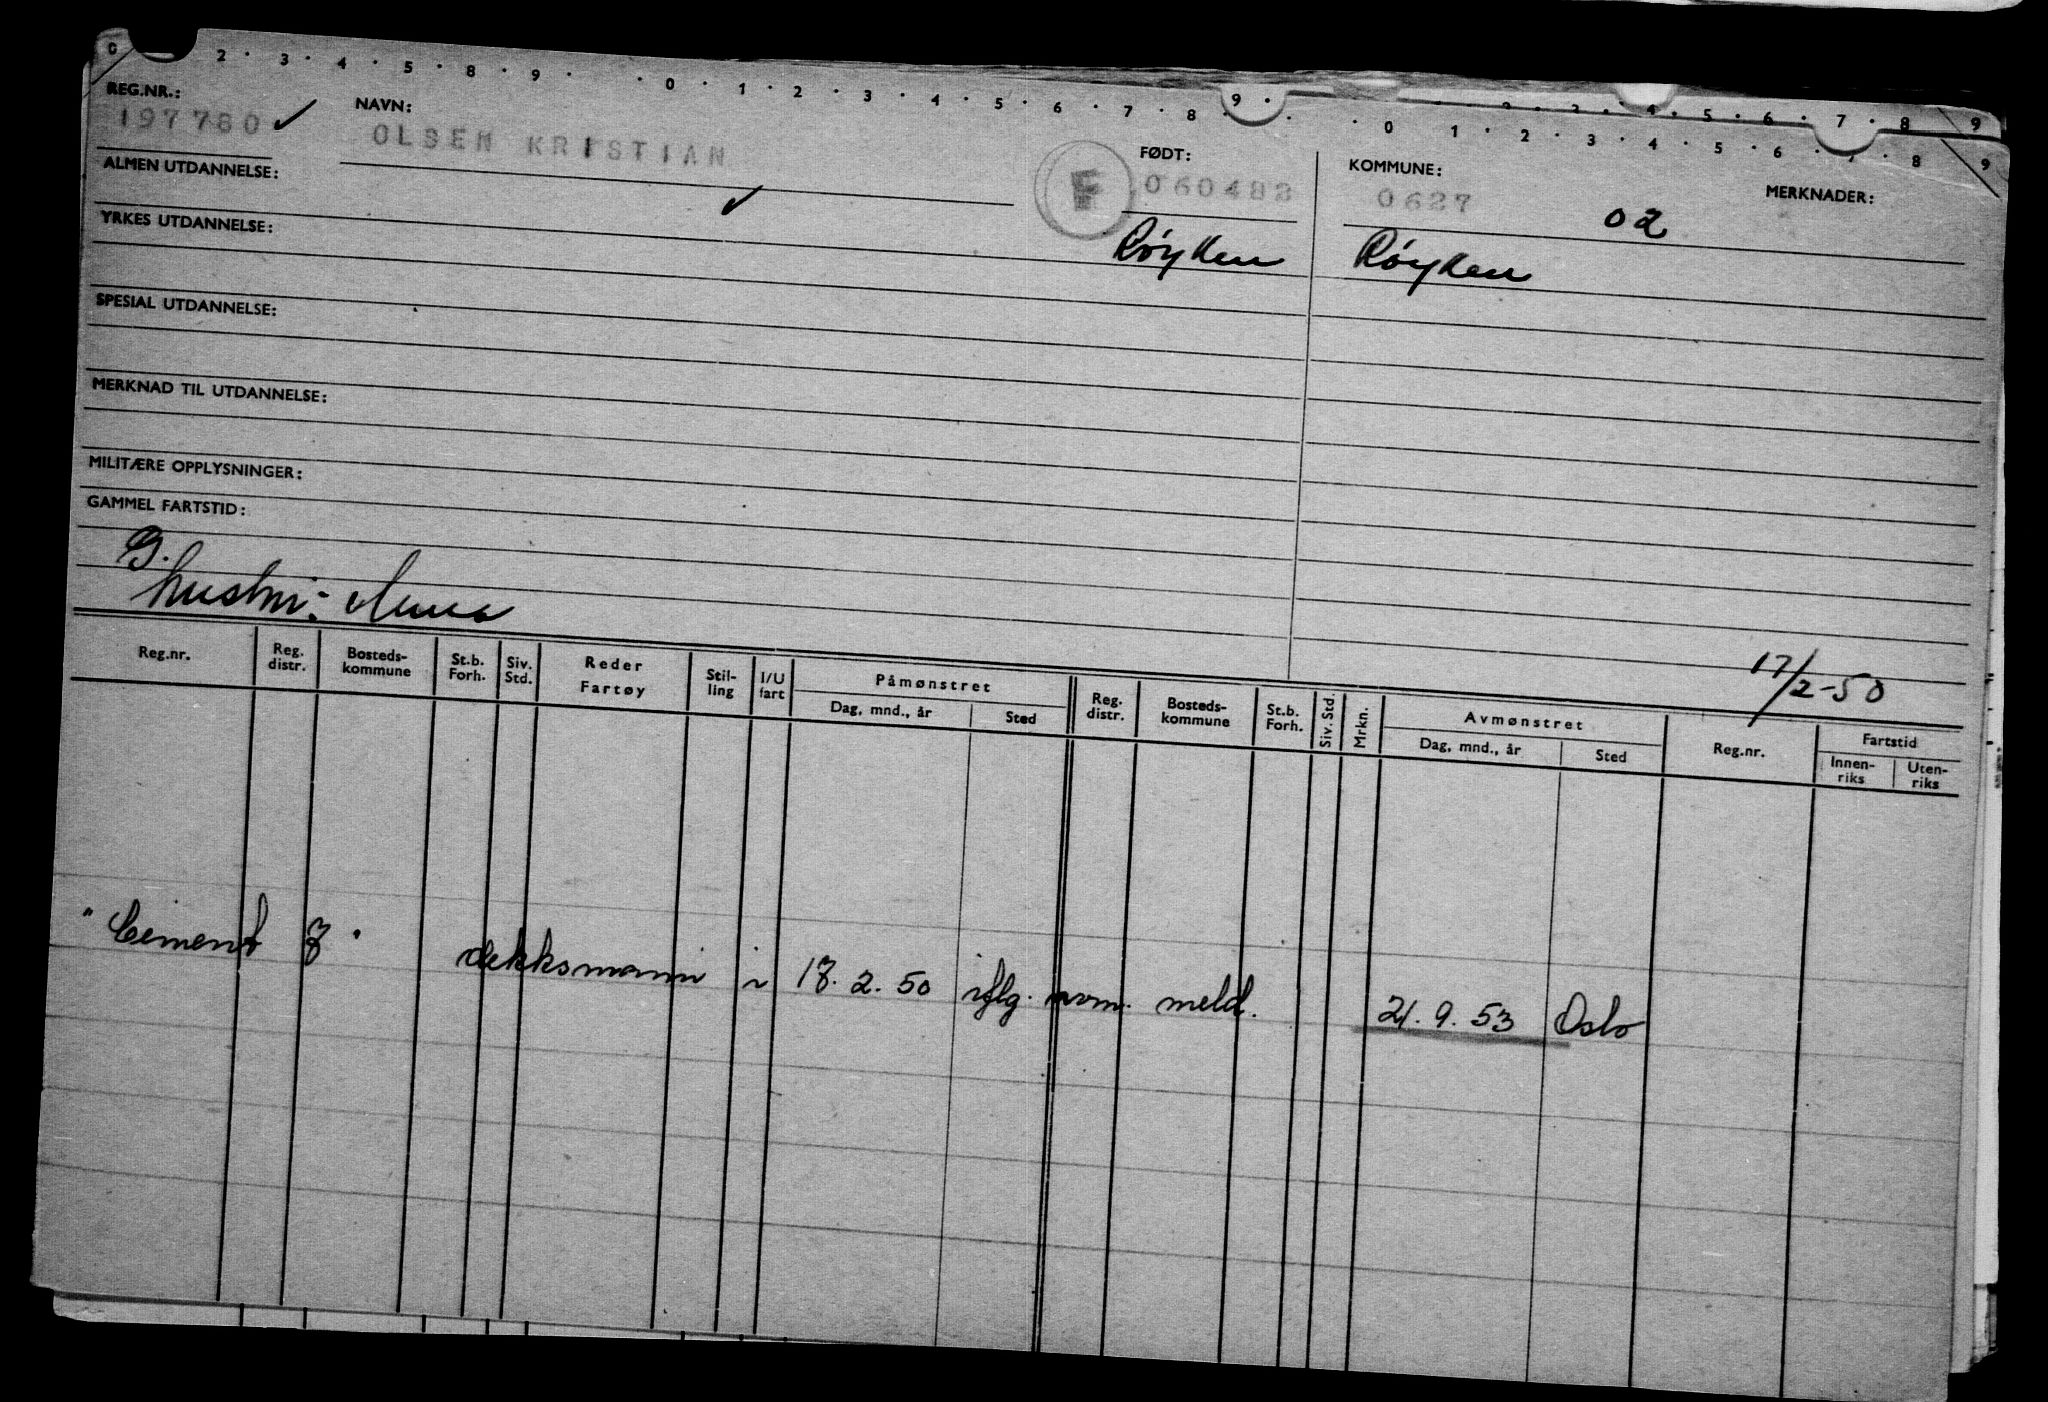 0 2 · 3 · 4 · 5 · 8 · 9 · · 0 · 1 · 2 · 3 · 4 · 5 · 6 · 7 · 8 · 9 ·
· 4 · 5 · 6 · 7 · 8 9
· 0 1 · 2 · 3 · 4 · 5 · 6 · 8 9
REG.NR.: NAVN: FØDT: KOMMUNE: MERKNADER:
197780 ✓ OLSEN KRISTIAN F 060482 0627 02
ALMEN UTDANNELSE: ✓
YRKES UTDANNELSE: Røyken Røyken
SPESIAL UTDANNELSE:
MERKNAD TIL UTDANNELSE:
MILITÆRE OPPLYSNINGER:
GAMMEL FARTSTID:
G.
hustru: Anna
17/2-50
Reg.nr. Reg. distr. Bosteds-kommune St.b. Forh. Siv. Std. Reder Fartøy Stil-ling I/U fart Påmønstret Dag, mnd., år Sted Reg. distr. Bosteds-kommune St.b. Forh. Siv. Std. Mrkn. Avmønstret Dag, mnd., år Sted Reg.nr. Fartstid Innen-riks Uten-riks
"Cement 7" dekksmann i 17.2.50 iflg. avm. meld. 21.9.53 Oslo